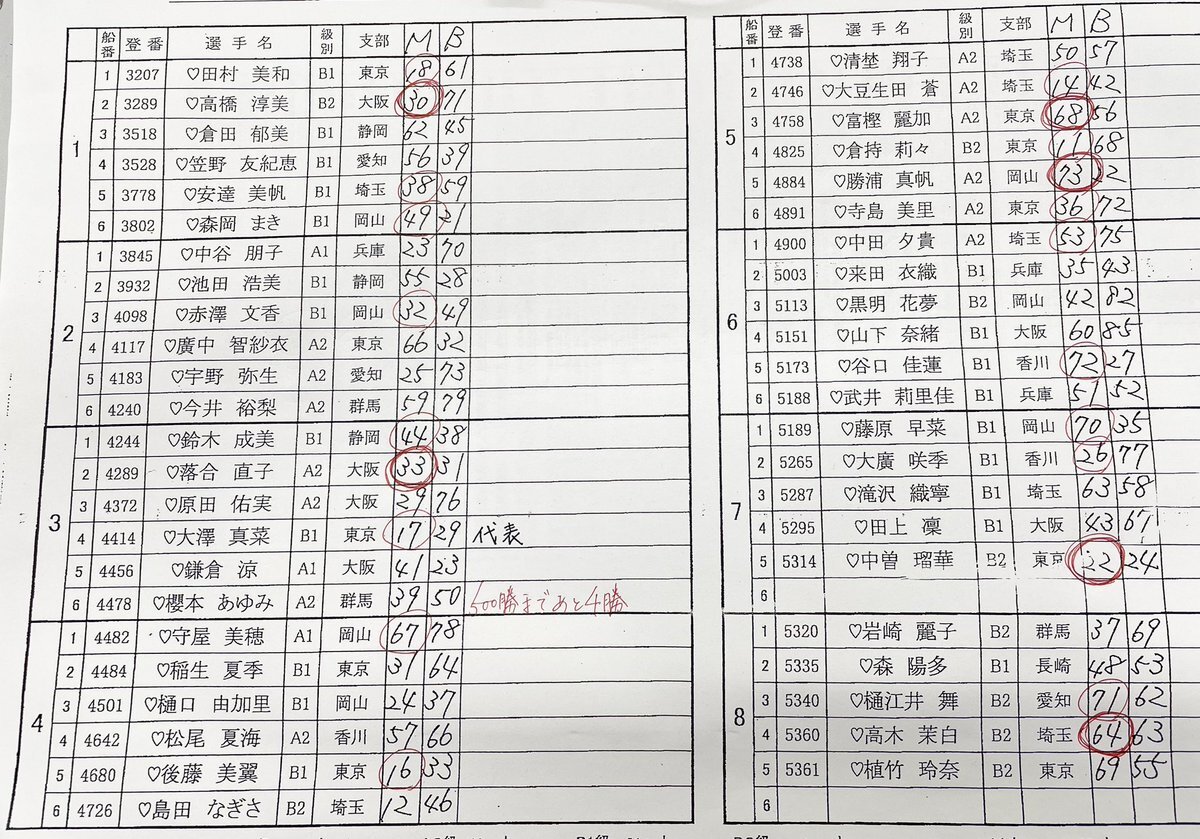 船番 登番 選手名 級別 支部 M B
1
1 3207 ♡田村 美和 B1 東京 18 61
2 3289 ♡高橋 淳美 B2 大阪 30 71
3 3518 ♡倉田 郁美 B1 静岡 62 45
4 3528 ♡笠野 友紀恵 B1 愛知 56 39
5 3778 ♡安達 美帆 B1 埼玉 38 59
6 3802 ♡森岡 まき B1 岡山 49 21
2
1 3845 ♡中谷 朋子 A1 兵庫 23 70
2 3932 ♡池田 浩美 B1 静岡 55 28
3 4098 ♡赤澤 文香 B1 岡山 32 49
4 4117 ♡廣中 智紗衣 A2 東京 66 32
5 4183 ♡宇野 弥生 A2 愛知 25 73
6 4240 ♡今井 裕梨 A2 群馬 59 79
3
1 4244 ♡鈴木 成美 B1 静岡 44 38
2 4289 ♡落合 直子 A2 大阪 33 31
3 4372 ♡原田 佑実 A2 大阪 29 76
4 4414 ♡大澤 真菜 B1 東京 17 29 代表
5 4456 ♡鎌倉 涼 A1 大阪 41 23
6 4478 ♡櫻本 あゆみ A2 群馬 39 50 500勝まであと4勝
4
1 4482 ♡守屋 美穂 A1 岡山 67 78
2 4484 ♡稲生 夏季 B1 東京 31 64
3 4501 ♡樋口 由加里 B1 岡山 24 37
4 4642 ♡松尾 夏海 A2 香川 57 66
5 4680 ♡後藤 美翼 B1 東京 16 33
6 4726 ♡島田 なぎさ B2 埼玉 12 46
船番 登番 選手名 級別 支部 M B
5
1 4738 ♡清埜 翔子 A2 埼玉 50 57
2 4746 ♡大豆生田 蒼 A2 埼玉 14 42
3 4758 ♡富樫 麗加 A2 東京 68 56
4 4825 ♡倉持 莉々 B2 東京 11 68
5 4884 ♡勝浦 真帆 A2 岡山 73 22
6 4891 ♡寺島 美里 A2 東京 36 72
6
1 4900 ♡中田 夕貴 A2 埼玉 53 75
2 5003 ♡来田 衣織 B1 兵庫 35 43
3 5113 ♡黒明 花夢 B2 岡山 42 82
4 5151 ♡山下 奈緒 B1 大阪 60 85
5 5173 ♡谷口 佳蓮 B1 香川 72 27
6 5188 ♡武井 莉里佳 B1 兵庫 51 52
7
1 5189 ♡藤原 早菜 B1 岡山 70 35
2 5265 ♡大廣 咲季 B1 香川 26 77
3 5287 ♡滝沢 織寧 B1 埼玉 63 58
4 5295 ♡田上 凜 B1 大阪 43 67
5 5314 ♡中曽 瑠華 B2 東京 22 24
6
8
1 5320 ♡岩崎 麗子 B2 群馬 37 69
2 5335 ♡森 陽多 B1 長崎 48 53
3 5340 ♡樋江井 舞 B2 愛知 71 62
4 5360 ♡高木 茉白 B2 埼玉 64 63
5 5361 ♡植竹 玲奈 B2 東京 69 55
6